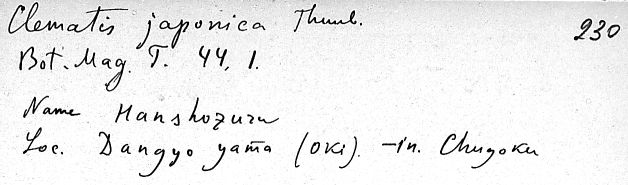 Clematis japonica Thunb. 230
Bot. Mag. T. 44, 1.
Name Hanshozuru
Loc. Dangyo yama (OKi). -in. Chugoku